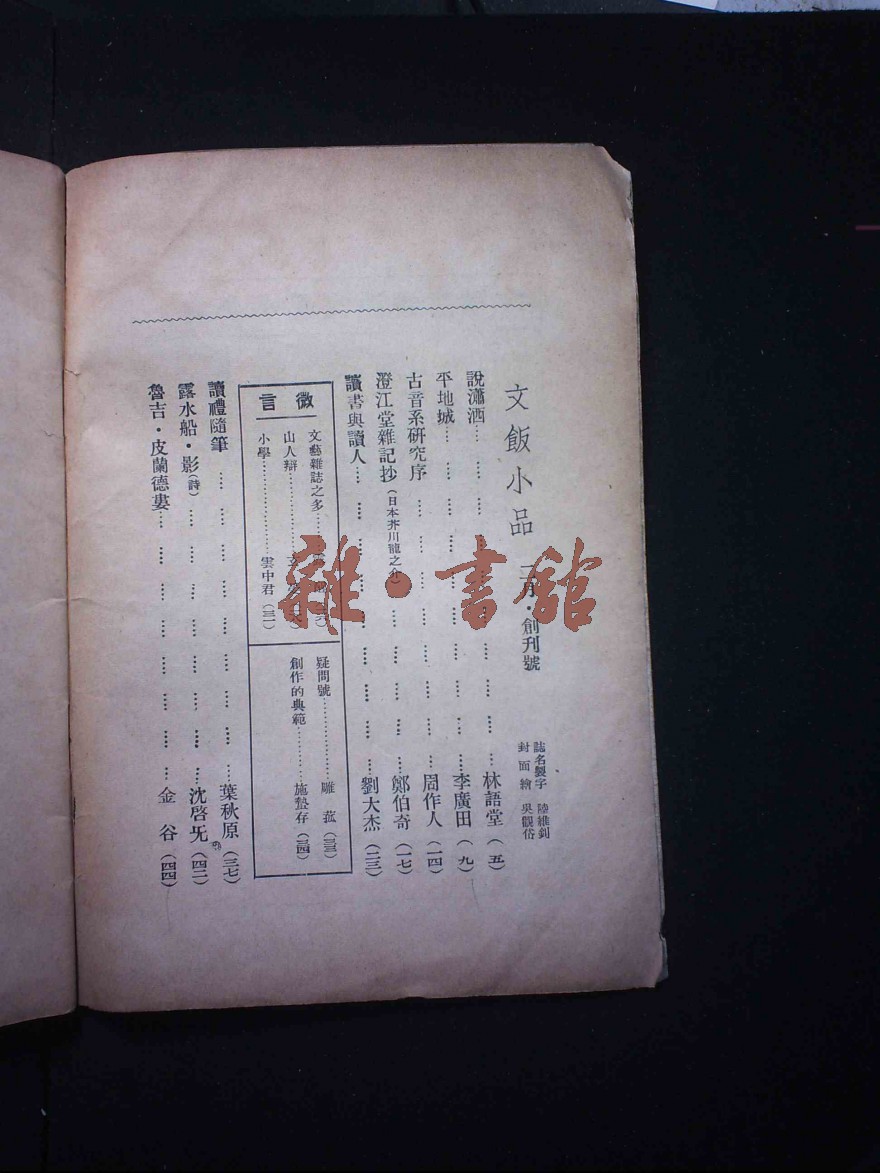 文飯小品 二月·創刊號
誌名製字 陸維釗
封面繪 吳觀岱
說瀟洒 林語堂(五)
平地城 李廣田(九)
古音系研究序 周作人(一四)
澄江堂雜記抄(日本芥川龍之介) 鄭伯奇(一七)
讀書與讀人 劉大杰(二三)
微言
文藝雜誌之多
山人辯
小學 雲中君(三一)
疑問號 雕菰(三三)
創作的典範 施蟄存(三四)
讀禮隨筆 葉秋原(三七)
露水船·影(詩) 沈啓旡(四二)
魯吉·皮蘭德婁 金谷(四四)
雜·書館